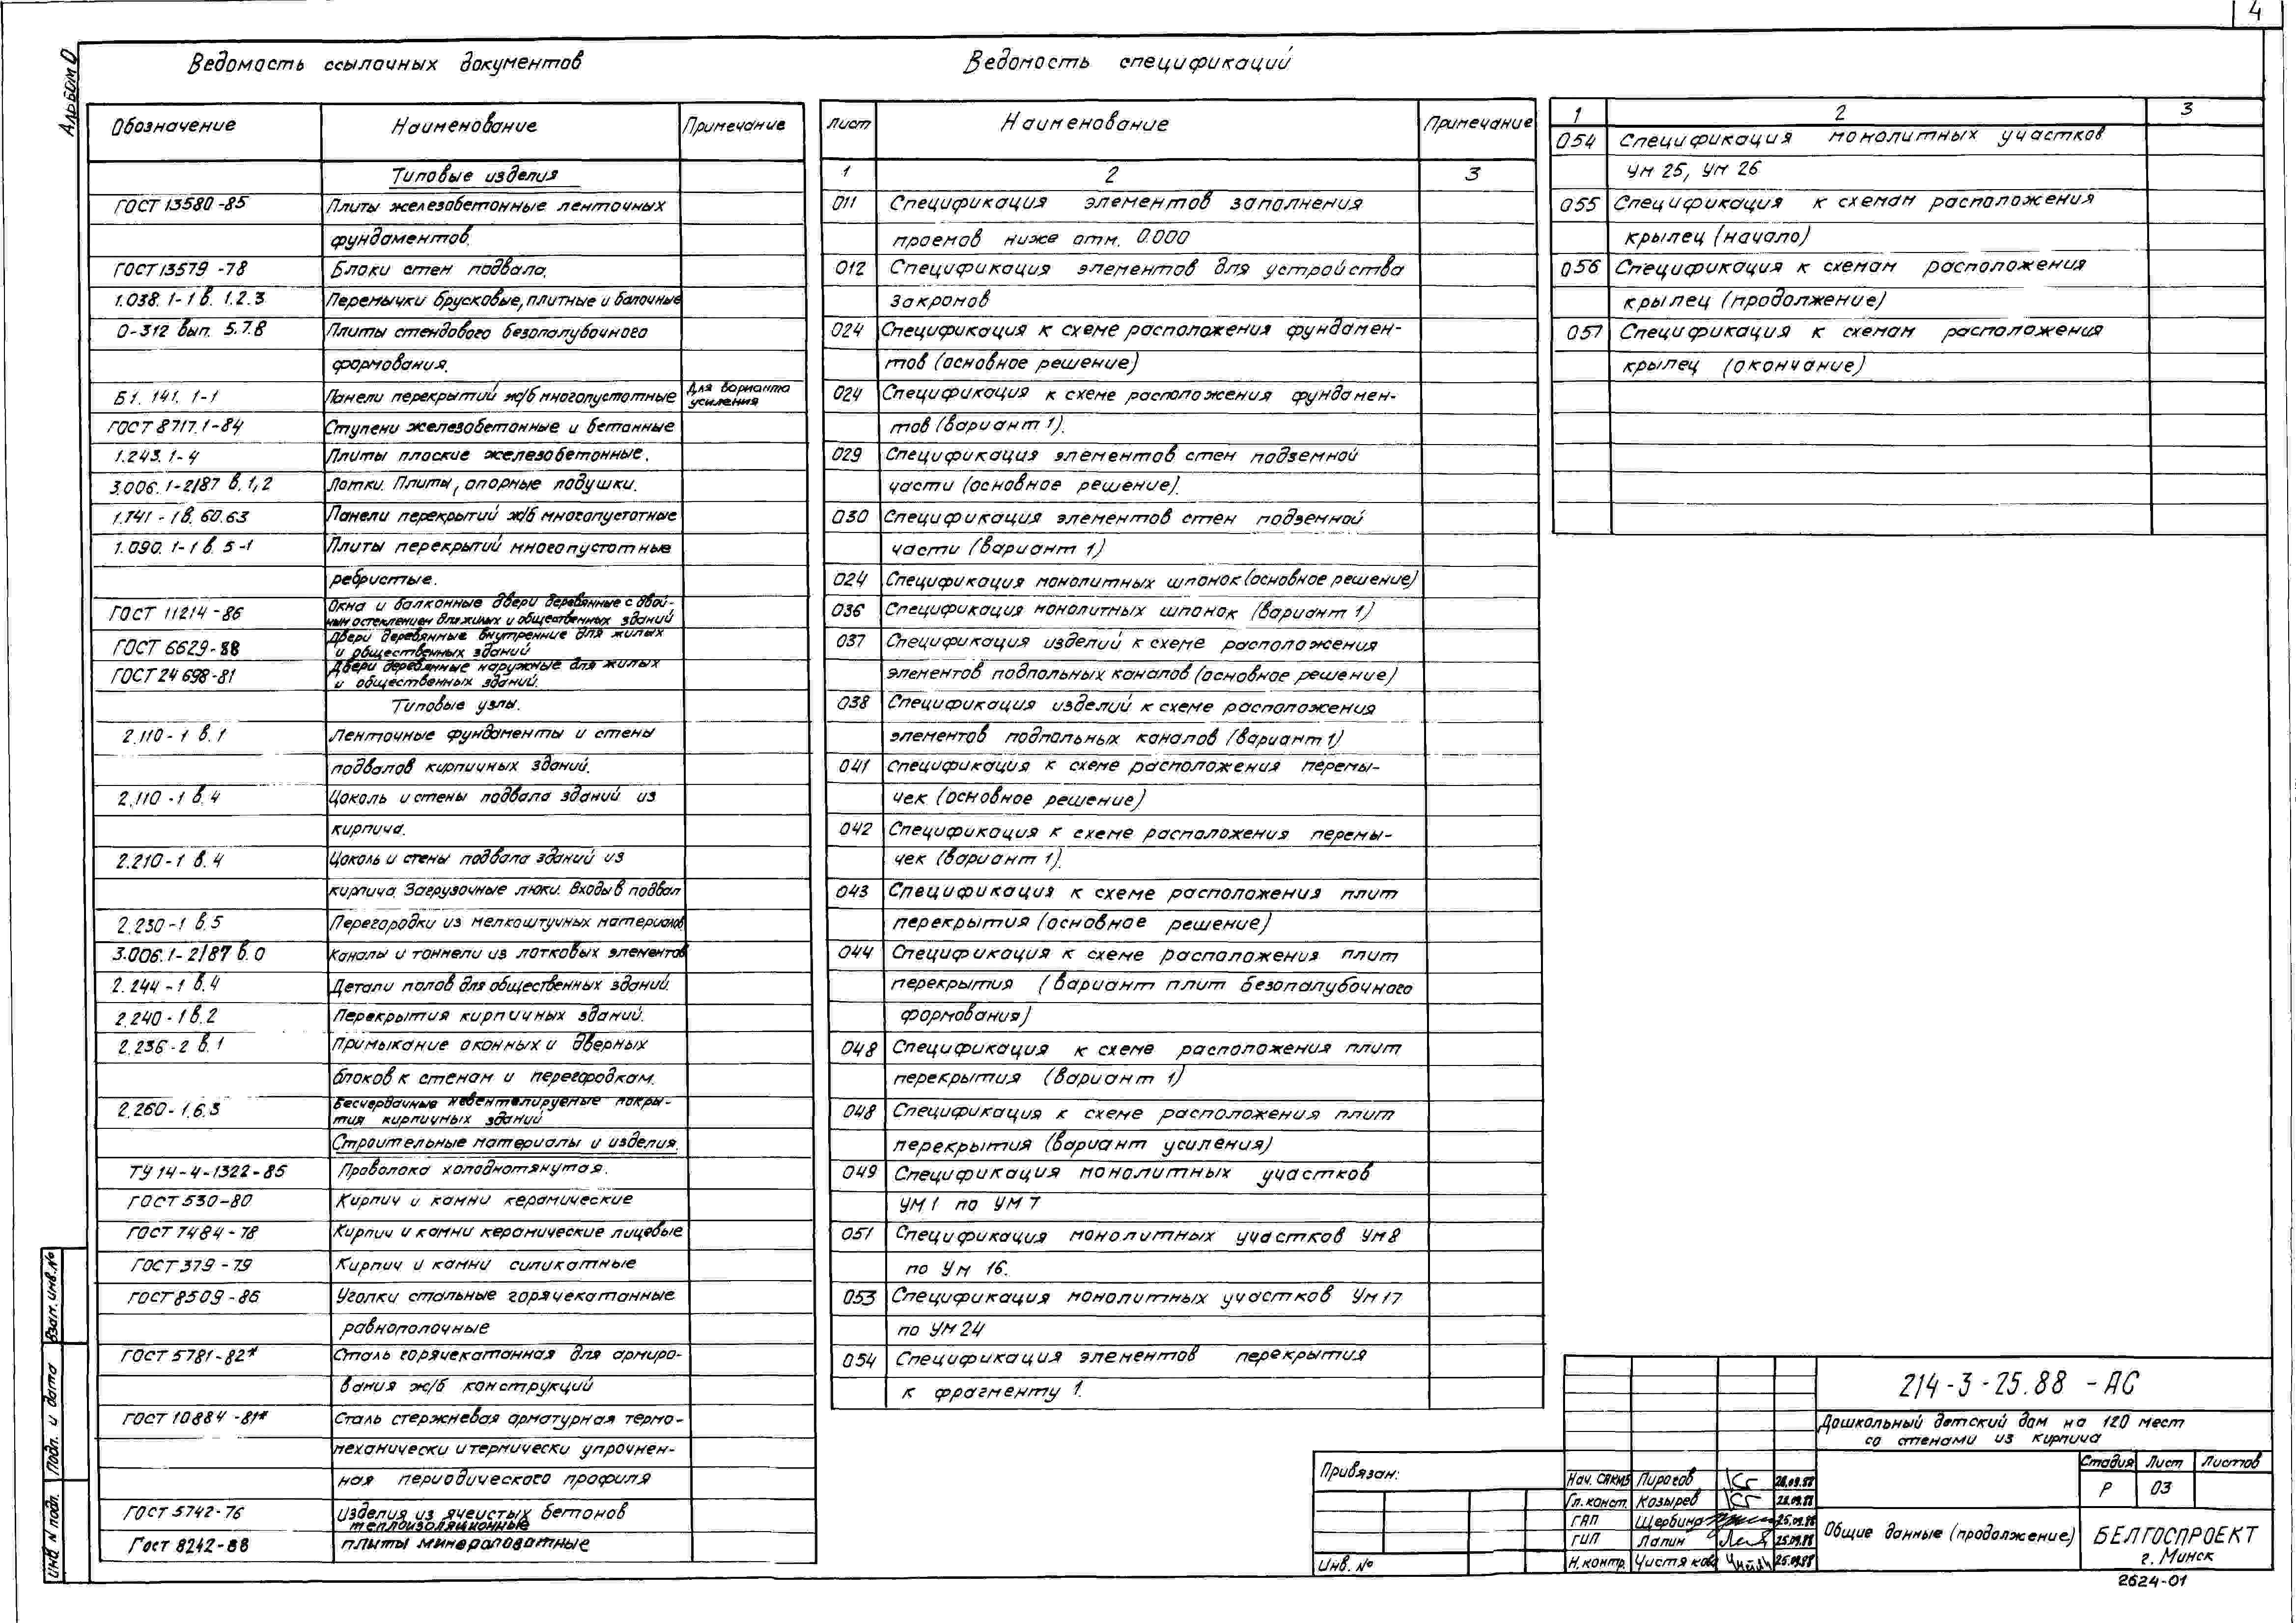 4
Альбом 0
Ведомость ссылочных документов
Обозначение Наименование Примечание
Типовые изделия
ГОСТ 13580-85 Плиты железобетонные ленточных
фундаментов.
ГОСТ 13579-78 Блоки стен подвала.
1.038.1-1 в. 1.2.3 Перемычки брусковые, плитные и балочные
0-312 вып. 5.7.8 Плиты стендового безопалубочного
формования.
Б1.141.1-1 Панели перекрытий ж/б многопустотные Для варианта
усиления
ГОСТ 8717.1-84 Ступени железобетонные и бетонные
1.243.1-4 Плиты плоские железобетонные.
3.006.1-2/87 в.1,2 Лотки. Плиты, опорные подушки.
1.141-1 в. 60.63 Панели перекрытий ж/б многопустотные
1.090.1-1 в. 5-1 Плиты перекрытий многопустотные
ребристые.
ГОСТ 11214-86 Окна и балконные двери деревянные с двой-
ным остеклением для жилых и общественных зданий
ГОСТ 6629-88 Двери деревянные внутренние для жилых
и общественных зданий
ГОСТ 24698-81 Двери деревянные наружные для жилых
и общественных зданий.
Типовые узлы.
2.110-1 в.1 Ленточные фундаменты и стены
подвалов кирпичных зданий.
2.110-1 в.4 Цоколь и стены подвала зданий из
кирпича.
2.210-1 в.4 Цоколь и стены подвала зданий из
кирпича. Загрузочные люки. Входы в подвал
2.230-1 в.5 Перегородки из мелкоштучных материалов
3.006.1-2/87 в.0 Каналы и тоннели из лотковых элементов
2.244-1 в.4 Детали полов для общественных зданий.
2.240-1 в.2 Перекрытия кирпичных зданий.
2.236-2 в.1 Примыкание оконных и дверных
блоков к стенам и перегородкам.
2.260-1.6.3 Бесчердачные невентелируемые покры-
тия кирпичных зданий
Строительные материалы и изделия.
ТУ 14-4-1322-85 Проволока холоднотянутая.
ГОСТ 530-80 Кирпич и камни керамические
ГОСТ 7484-78 Кирпич и камни керамические лицевые
ГОСТ 379-79 Кирпич и камни силикатные
ГОСТ 8509-86 Уголки стальные горячекатанные
равнополочные
ГОСТ 5781-82* Сталь горячекатанная для армиро-
вания ж/б конструкций
ГОСТ 10884-81* Сталь стержневая арматурная термо-
механически и термически упрочнен-
ная периодического профиля
ГОСТ 5742-76 Изделия из ячеистых бетонов
теплоизоляционные
Гост 8242-88 плиты минераловатные
Ведомость спецификаций
Лист Наименование Примечание
1 2 3
011 Спецификация элементов заполнения
проемов ниже отм. 0.000
012 Спецификация элементов для устройства
закромов
024 Спецификация к схеме расположения фундамен-
тов (основное решение)
024 Спецификация к схеме расположения фундамен-
тов (вариант 1).
029 Спецификация элементов стен подземной
части (основное решение).
030 Спецификация элементов стен подземной
части (вариант 1)
024 Спецификация монолитных шпонок (основное решение)
036 Спецификация монолитных шпонок (вариант 1)
037 Спецификация изделий к схеме расположения
элементов подпольных каналов (основное решение)
038 Спецификация изделий к схеме расположения
элементов подпольных каналов (вариант 1)
041 спецификация к схеме расположения перемы-
чек (основное решение)
042 Спецификация к схеме расположения перемы-
чек (вариант 1).
043 Спецификация к схеме расположения плит
перекрытия (основное решение)
044 Спецификация к схеме расположения плит
перекрытия (вариант плит безопалубочного
формования)
048 Спецификация к схеме расположения плит
перекрытия (вариант 1)
048 Спецификация к схеме расположения плит
перекрытия (вариант усиления)
049 Спецификация монолитных участков
УМ1 по УМ7
051 Спецификация монолитных участков Ум8
по Ум 16.
053 Спецификация монолитных участков Ум17
по УМ24
054 Спецификация элементов перекрытия
к фрагменту 1.
1 2 3
054 Спецификация монолитных участков
Ум 25, Ум 26
055 Спецификация к схемам расположения
крылец (начало)
056 Спецификация к схемам расположения
крылец (продолжение)
057 Спецификация к схемам расположения
крылец (окончание)
Взам. инв. №
Подп. и дата
Инв N подп.
Привязан:
Инв. №
214-3-25.88 -АС
Дошкольный детский дом на 120 мест
со стенами из кирпича
Стадия Лист Листов
Р 03
Нач. САКМ5 Пирогов 26.09.88
Гл. конст. Козырев 26.09.88
ГАП Щербина 25.09.88
ГИП Лапин 25.09.88
Н. контр. Чистякова 25.09.88
Общие данные (продолжение)
БЕЛГОСПРОЕКТ
г. Минск
2624-01